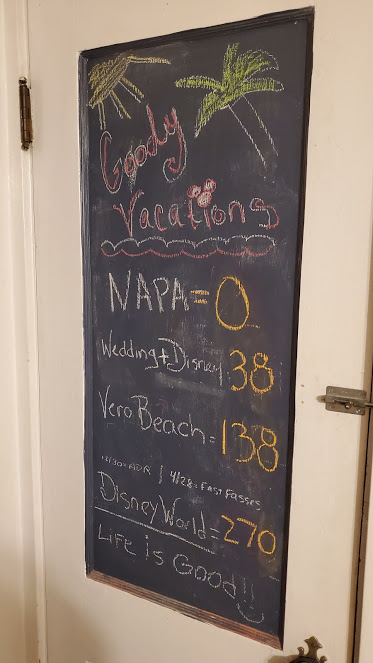 Goody
Vacations
NAPA = 0
Wedding + Disney 38
Vero Beach = 138
12/30 = ADR | 4/28 = Fast Passes
Disney World = 270
Life is Good!!